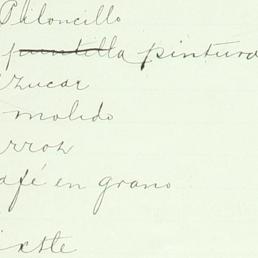 Piloncillo
puntilla pintura
Azucar
molido
rroz
afé en grano
ixtle